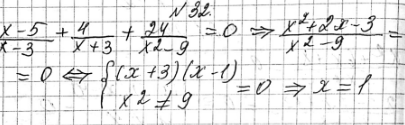 №32.
x-5/x-3 + 4/x+3 + 24/x²-9 = 0 ⇒ x²+2x-3/x²-9 =
= 0 ⇔ { (x+3)(x-1) = 0 ⇒ x = 1
x² ≠ 9